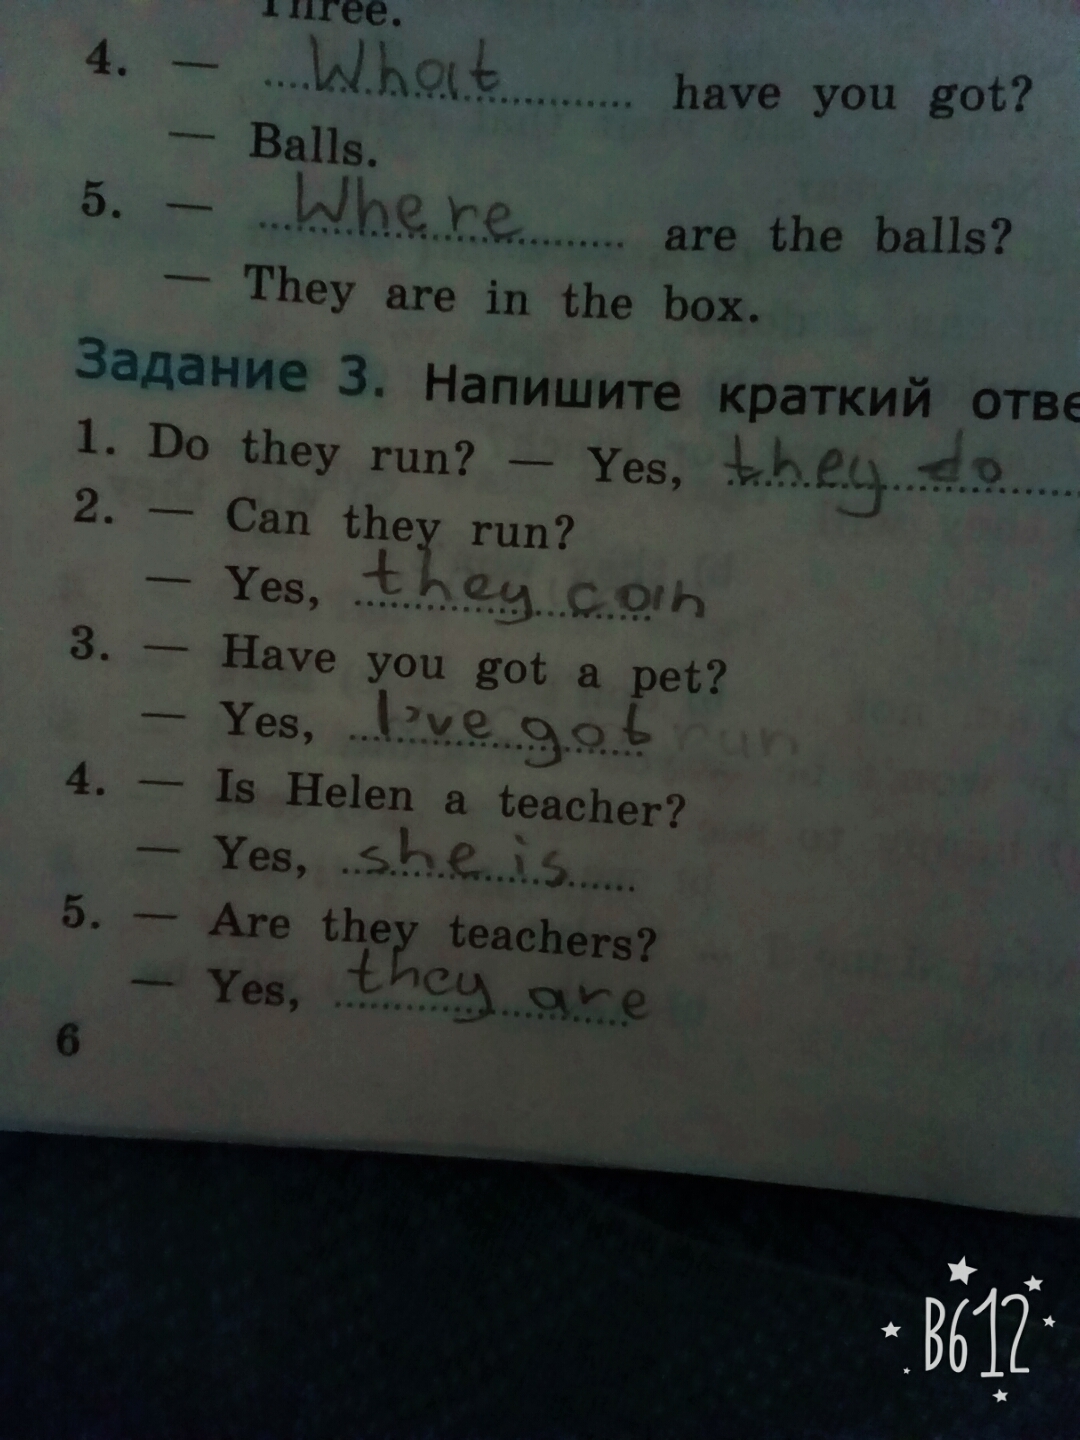 Three.
4. — What have you got?
— Balls.
5. — Where are the balls?
— They are in the box.
Задание 3. Напишите краткий отве
1. Do they run? — Yes, they do
2. — Can they run?
— Yes, they can
3. — Have you got a pet?
— Yes, I've got run
4. — Is Helen a teacher?
— Yes, she is
5. — Are they teachers?
— Yes, they are
6
B612